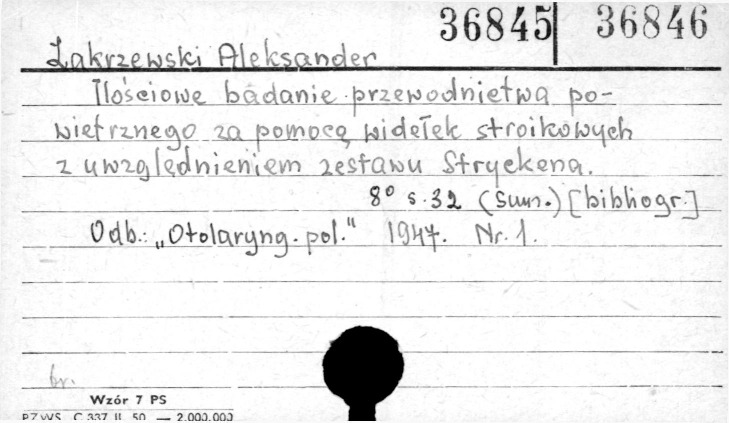 36845 36846
Zakrzewski Aleksander
Ilościowe badanie przewodnictwa po-
wietrznego za pomocą widełek stroikowych
z uwzględnieniem zestawu Stryckena.
8° s. 32 (Sum.) [bibliogr.]
Odb.: „Otolaryng. pol." 1947. Nr. 1.
br.
Wzór 7 PS
PZWS. C 337 II. 50 — 2.000.000